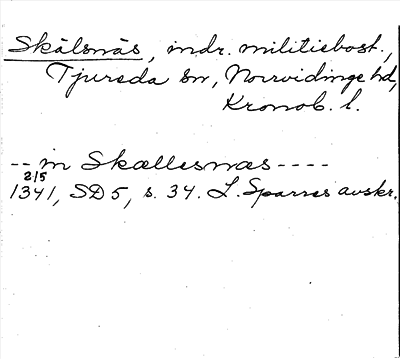 Skälsnäs, indr. militiebost.,
Tjureda sn, Norrvidinge hd,
Kronob. l.
-- in Skællesnæs ----
2/5
1341, SD 5, s. 34. L. Sparres avskr.